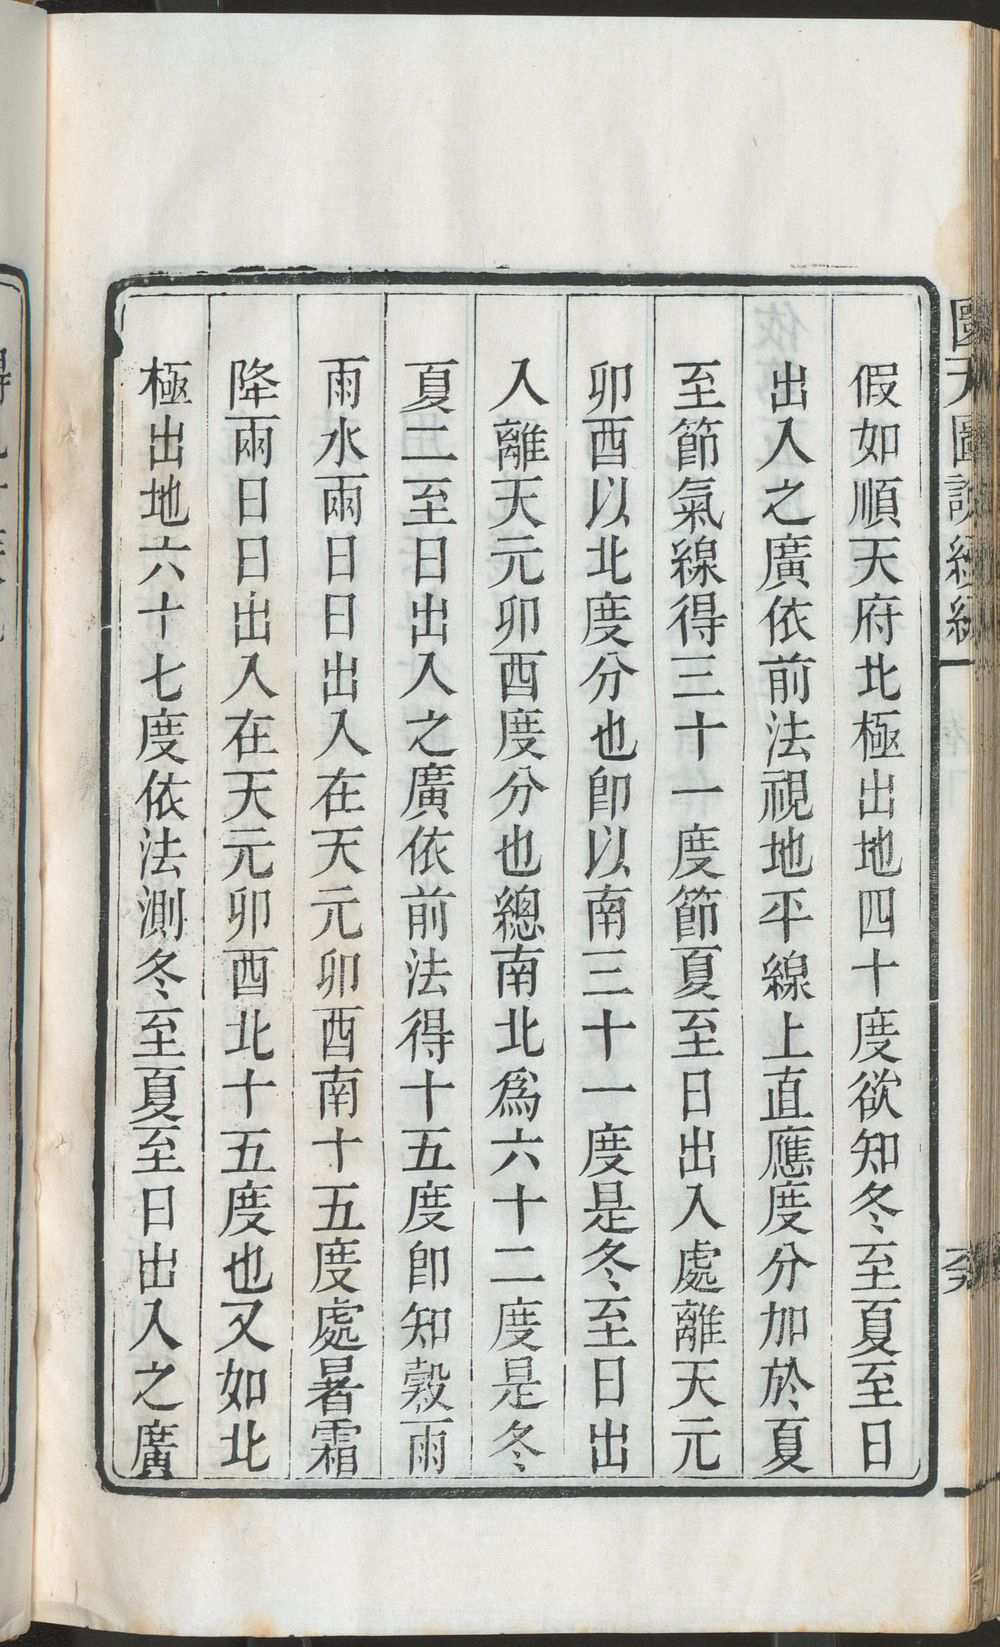 假如順天府北極出地四十度欲知冬至夏至日
出入之廣依前法視地平線上直應度分加於夏
至節氣線得三十一度節夏至日出入處離天元
卯酉以北度分也卽以南三十一度是冬至日出
入離天元卯酉度分也總南北爲六十二度是冬
夏二至日出入之廣依前法得十五度卽知穀雨
雨水兩日日出入在天元卯酉南十五度處暑霜
降兩日日出入在天元卯酉北十五度也又如北
極出地六十七度依法測冬至夏至日出入之廣